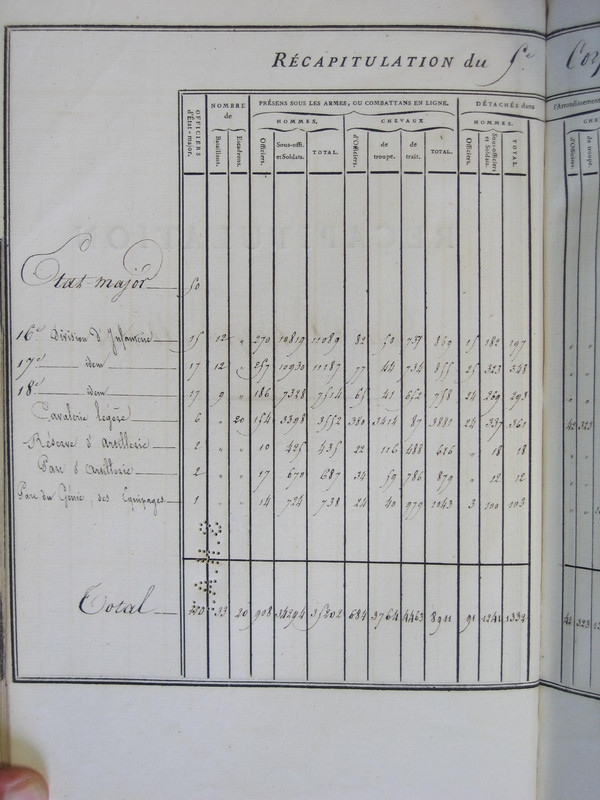 RÉCAPITULATION du 5e Corp
NOMBRE de
PRÉSENS SOUS LES ARMES, OU COMBATTANS EN LIGNE.
DÉTACHÉS dans
l'Arrondissement
OFFICIERS d'État-major.
HOMMES.
CHEVAUX
HOMMES.
CHE
Bataillons.
Escadrons.
Officiers.
Sous-offi. et Soldats.
TOTAL.
d'Officiers.
de troupe.
de trait.
TOTAL.
Officiers.
Sous-officiers et Soldats.
TOTAL.
d'Officiers.
de troupe.
Etat major 50
16e Division d'Infanterie 15 12 " 270 10819 11089 82 50 737 869 15 182 197
17e idem 17 12 " 257 10930 11187 77 44 734 855 25 323 348
18e idem 17 9 " 186 7328 7514 65 41 652 758 24 269 293
Cavalerie légère 6 " 20 154 3398 3552 380 3414 87 3881 24 337 361 42 323
Réserve d'artillerie 2 " " 10 425 435 22 116 488 626 " 18 18
Parc d'artillerie 2 " " 17 670 687 34 59 786 879 " 12 12
Parc du Génie, des Equipages 1 " " 14 724 738 24 40 979 1043 3 100 103
Total 110 33 20 908 34294 35202 684 3764 4463 8911 91 1241 1332 42 323